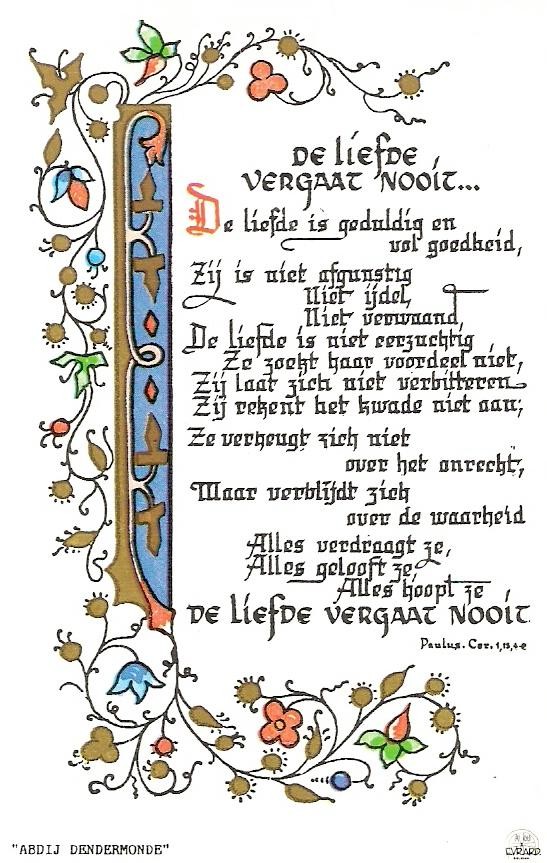 DE LIEFDE
VERGAAT NOOIT...
De liefde is geduldig en
vol goedheid,
Zij is niet afgunstig
Niet ijdel,
Niet verwaand,
De liefde is niet eerzuchtig
Ze zoekt haar voordeel niet,
Zij laat zich niet verbitteren
Zij rekent het kwade niet aan;
Ze verheugt zich niet
over het onrecht,
Maar verblijdt zich
over de waarheid
Alles verdraagt ze,
Alles gelooft ze,
Alles hoopt ze
DE LIEFDE VERGAAT NOOIT
Paulus. Cor. 1,13,4-8
"ABDIJ DENDERMONDE"
EVRARD